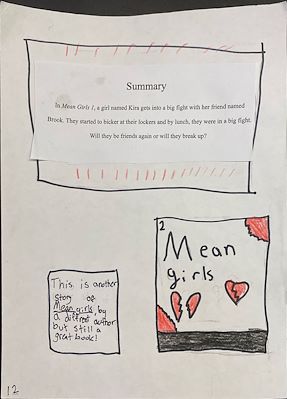 Summary
In Mean Girls 1, a girl named Kira gets into a big fight with her friend named
Brook. They started to bicker at their lockers and by lunch, they were in a big fight.
Will they be friends again or will they break up?
2
Mean
girls
This is another
story of
Mean girls by
a diffrent author
but still a
great book!
12